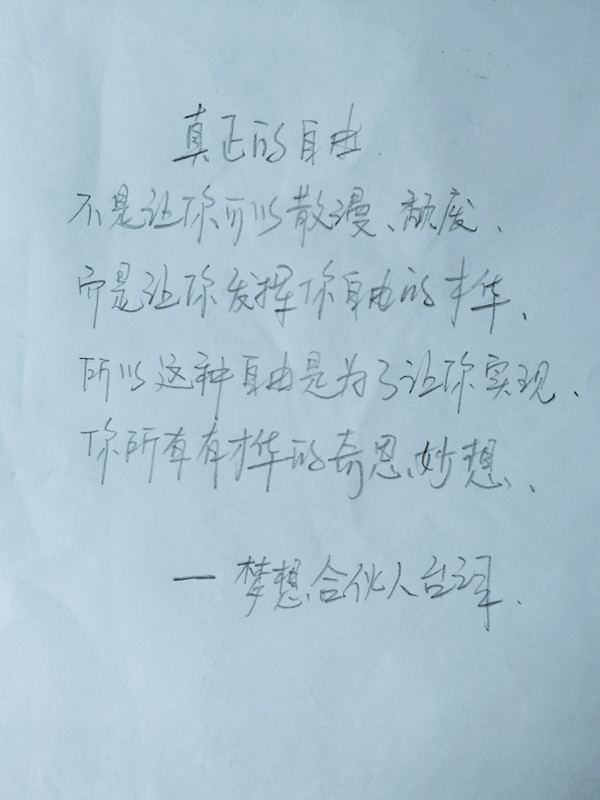 真正的自由
不是让你可以散漫、颓废、
而是让你发挥你自由的才华、
所以这种自由是为了让你实现、
你所有有才华的奇思妙想、
一梦想合伙人台词.